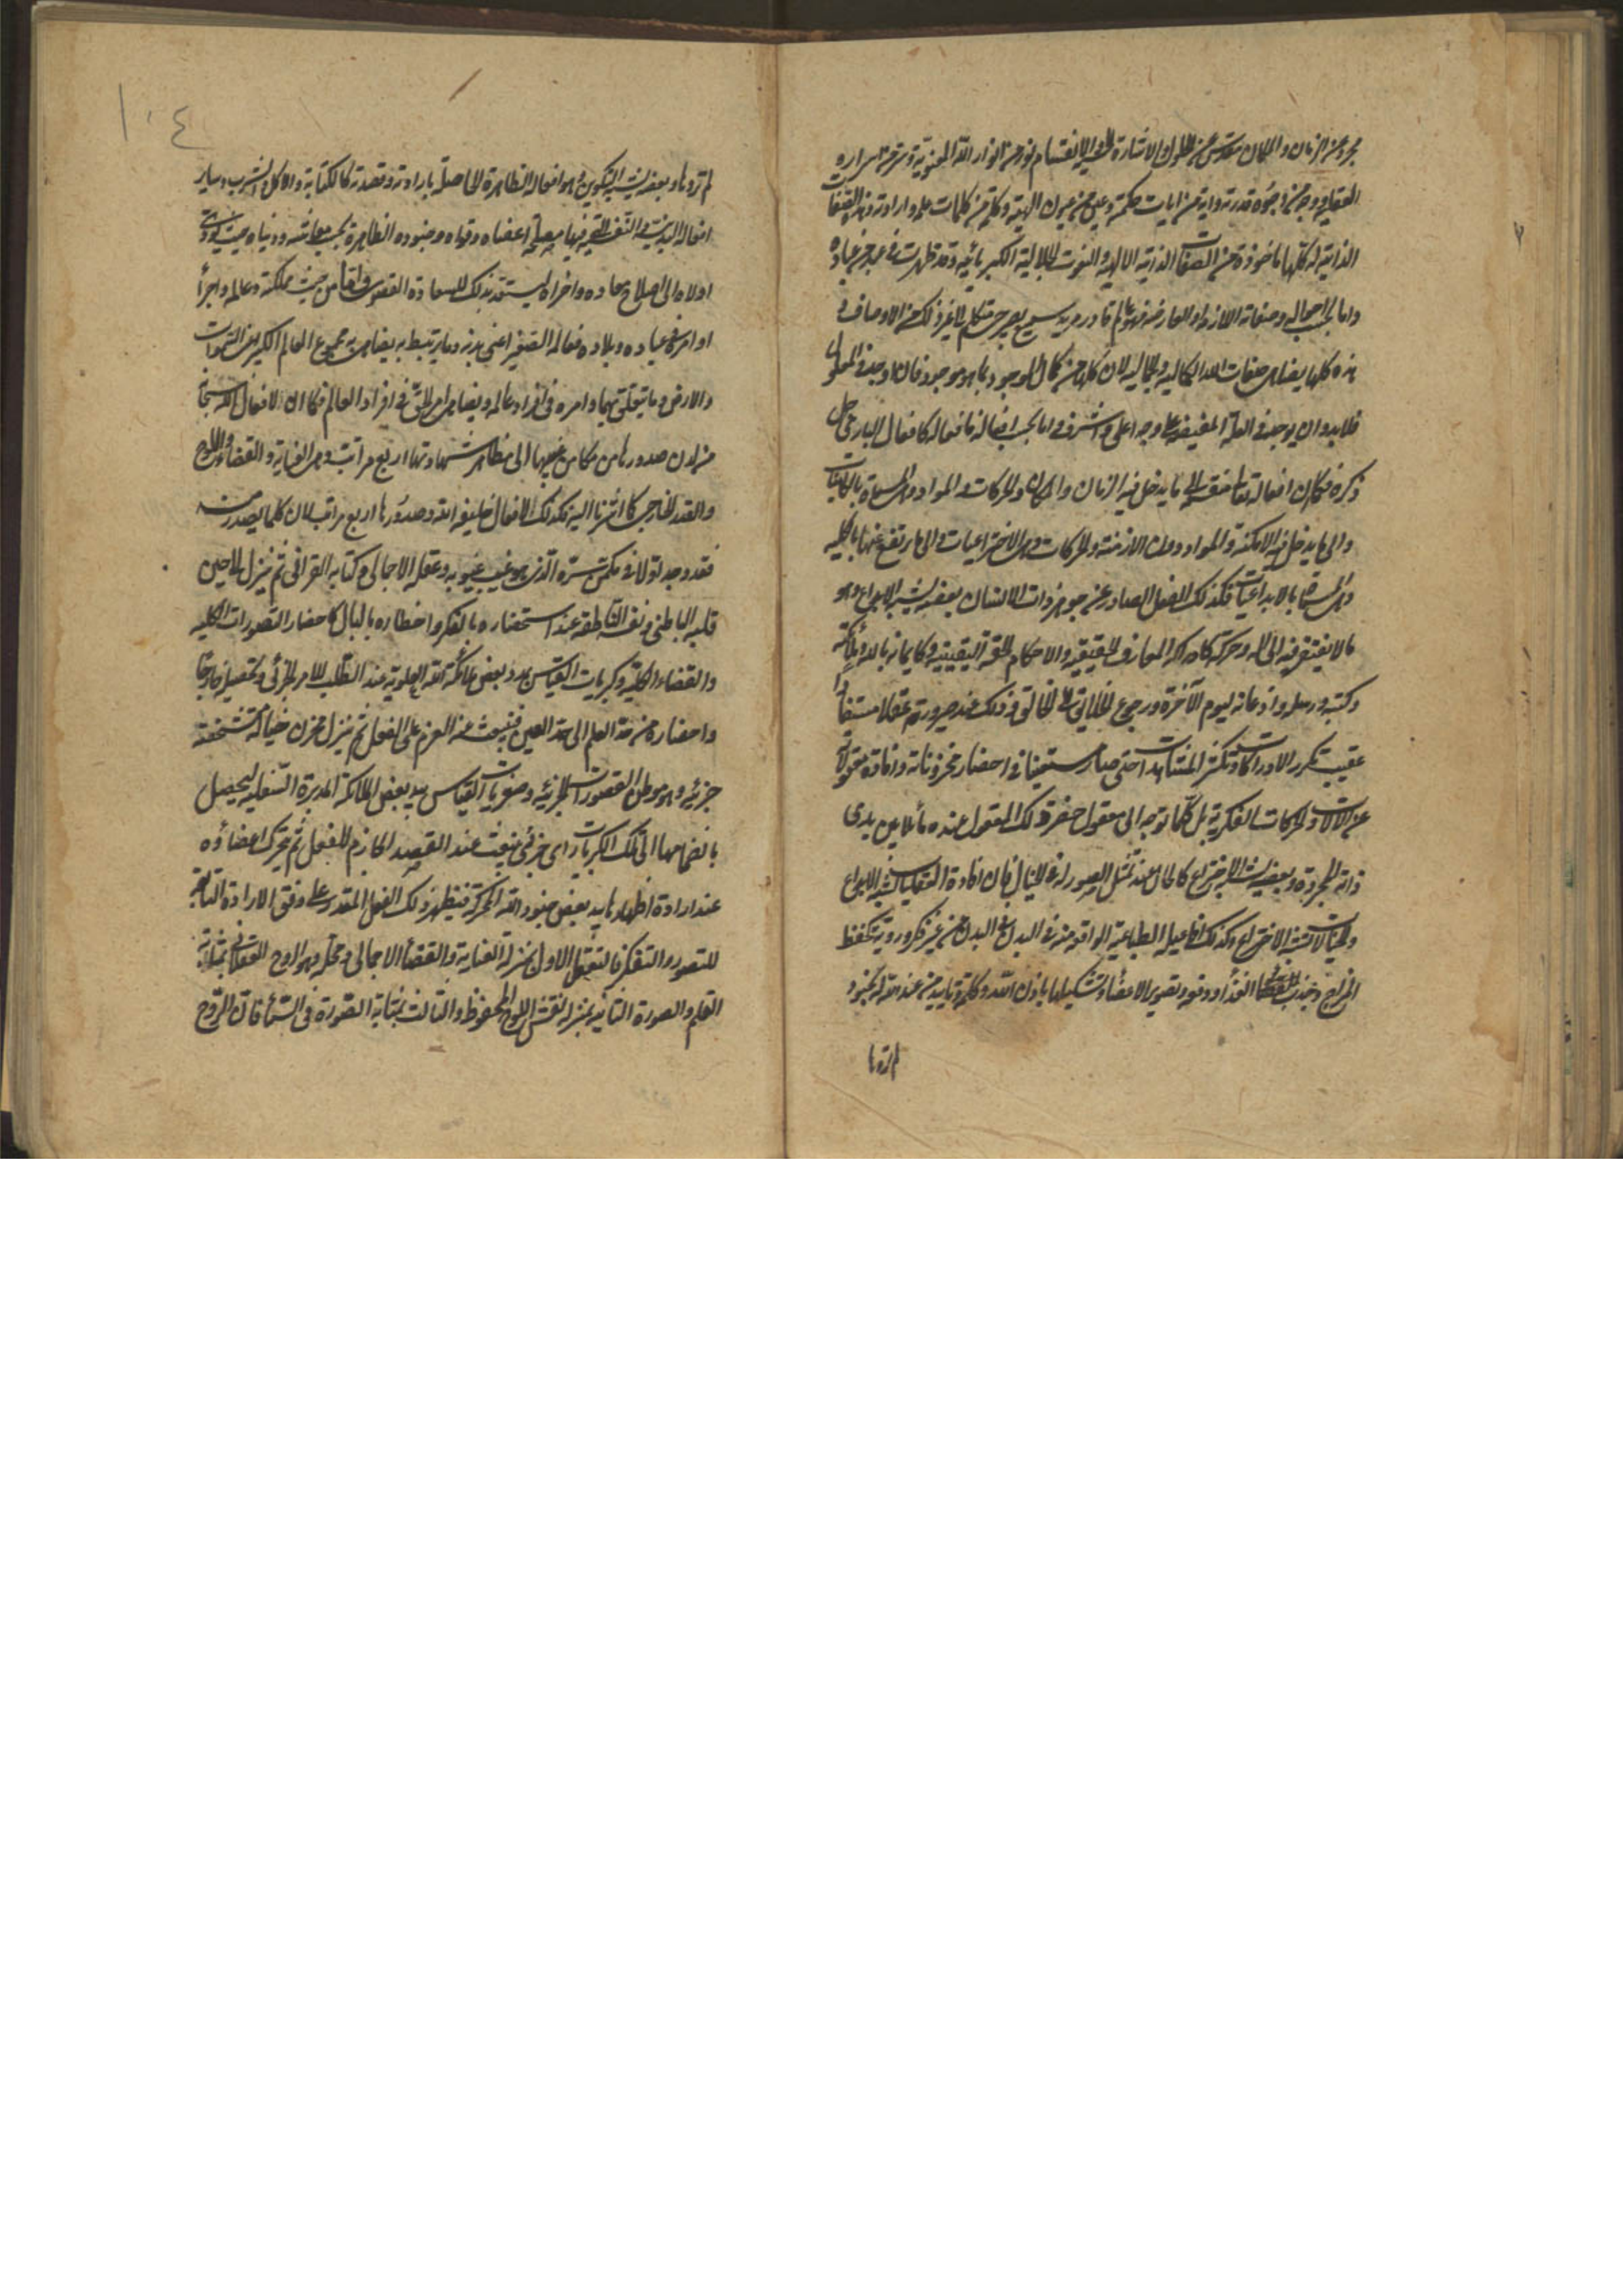 مجرد عن الزمان والمكان مقدس عن الحلول والاشارة الحسية والانقسام نور من انوار الله المعنوية وسر من اسراره
العقلية ووجه من وجوه قدرته واية من ايات حكمته وعين من عيون الهيته وكلمة من كلمات علمه وارادته وهذه الصفات
الذاتية له كلها ماخوذة من الصفات الذاتية الالهية والنعوت الجلالية الكبريائية وقد ظهرت في عبد من عباده
واما بحسب احواله وصفاته اللازمة او العارضة فهو عالم قادر مريد سميع بصير حي متكلم الى غير ذلك من الاوصاف و
هذه كلها يضاهي صفات الله الكمالية والجمالية لان كلها من كمال الموجود بما هو موجود فان كلما وجد في المعلول
فلا بد وان يوجد في العلة المفيضة على وجه اعلى واشرف واما بحسب افعاله فافعاله كافعال الباري جل
ذكره فكما ان افعاله تعالى منقسمة الى ما يدخل فيه الزمان والمكان والحركات والمواد وهي المسماة بالكائنات
والى ما يدخل فيه الامكنة والمواد دون الازمنة والحركات وهي الاختراعيات والى ما يرتفع عنها بالكلية
وهي المسماة بالابداعيات فكذلك الفعل الصادر عن جوهر ذات الانسان بعضه يشبه الابداع وهو
ما لا يفتقر فيه الى الة وحركة كادراكه المعارف الحقيقية والاحكام الحقة اليقينية وكايمانه بالله وملائكته
وكتبه ورسله واذعانه ليوم الآخرة ورجوع الخلائق الى الخالق وذلك عند صيرورته عقلا مستفادا
عقيب تكرر الادراكات وتكثر المشاهدات حتى صار مستغنيا في احضار مخزوناته وافادة معقولاته
عن الآلات والحركات الفكرية بل كلما توجه الى معقول حضر ذلك المعقول عنده ماثلا بين يدي
ذاته المجردة وبعضه يشبه الاختراع كالحال عند تمثل الصور له في الخيال فان افادة التعقليات يشبه الابداع
والخيالات يشبه الاختراع وكذلك افاعيله الطباعية الواقعة منه في البدن على البدن من غير فكر وروية كحفظ
المزاج وجذب الغذاء ودفعه وتصوير الاعضاء وتشكيلها باذن الله وكلمة تاييد من عند الله بجنود
لم تروها
١٠٤
لم تروها وبعضه يشبه التكوين وهو افعاله الظاهرة الحاصلة بارادته وقصدته كالكتابة والاكل والشرب وساير
افعاله البدنية والنفسية التي فيها مصلحة اعضاه وقواه وجنوده الظاهرة بحسب معاشه ودنياه حيث يؤدي
اولاه الى اصلاح معاده واخراه ليستعد بذلك للسعادة القصوى واما من حيث مملكته وعالمه واجراء
اوامره في عباده وبلاده فعالمه الصغير اعني بدنه وما يرتبط به يضاهي به مجموع العالم الكبير من السموات
والارض وما يتعلق بهما وامره في افراد عالمه يضاهي امر الحق في افراد العالم فكما ان لافعال الله سبحانه
من لدن صدورها من مكامن غيبها الى مظاهر شهادتها اربع مراتب وهي العناية والقضاء واللوح
والقدر الخارجي كما اشرنا اليه فكذلك لافعال خليفة الله وصدورها اربع مراتب لان كلما يصدر منه
فقد وجد اولا في مكمن سره الذي هو غيب غيوبه وعقله الاجمالي وكتابه القرآني ثم ينزل الى حين
قلبه الباطني ونفسه الناطقة عند استحضاره بالفكر واخطاره بالبال كاحضار التصورات الكلية
والقضاء الكلية وكبريات القياس بمدد بعض ملائكة الله العلوية عند الطلب للامر الجزئي وتحصيله خارجا
واحضاره من حد العلم الى حد العين فينبعث منه العزم على الفعل ثم ينزل مخزن خياله متشخصة
جزئية وهو موطن التصورات الجزئية وصغريات القياس بيد بعض الملائكة المدبرة السفلية ليحصل
بانضمامها الى تلك الكبريات راى جزئي ينبعث عند القصد الجازم للفعل ثم يتحرك اعضاؤه
عند ارادة اظهارها بيد بعض جنود الله المحركة فيظهر ذلك الفعل المقدر على وفق الارادة التابعة
للتصور والتفكر فالتعقل الاول بمنزلة العناية والقضاء الاجمالي ومحله وهو الروح العقلاني بمثابة
القلم والصورة الثانية بمنزلة نقش اللوح المحفوظ والثالث بمثابة الصورة في السماء فان الروح